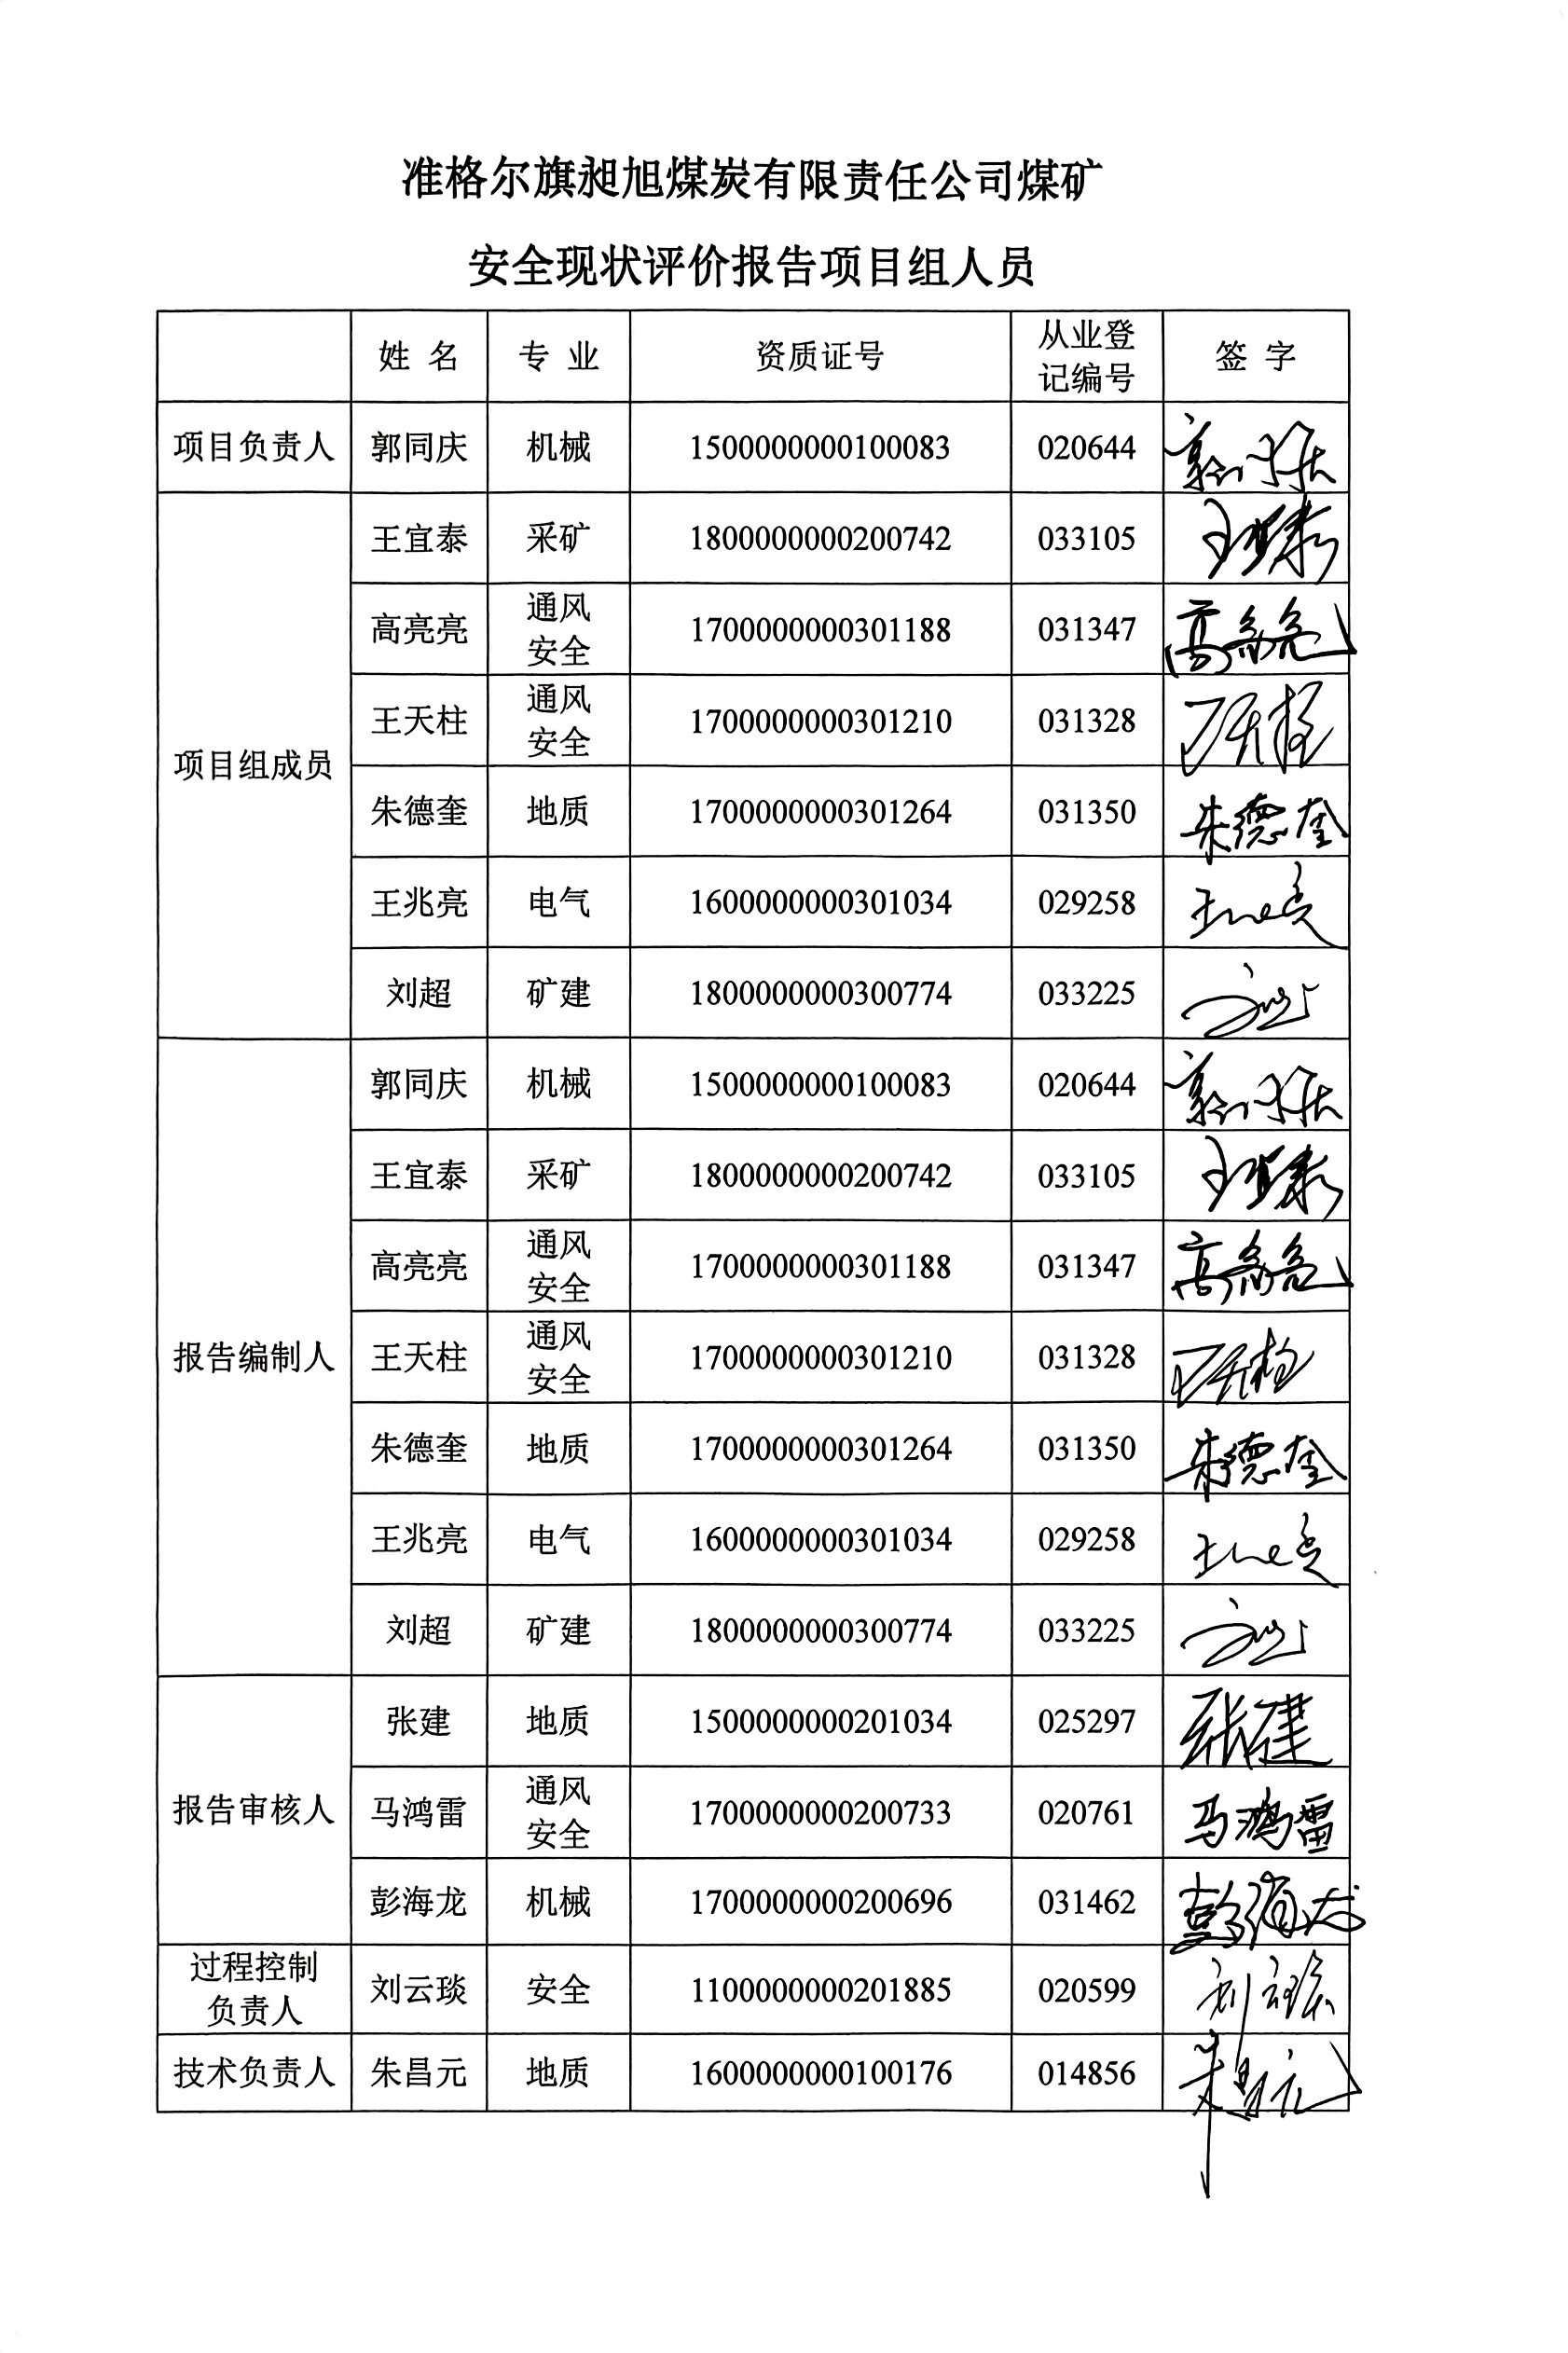 准格尔旗昶旭煤炭有限责任公司煤矿
安全现状评价报告项目组人员
姓 名 专 业 资质证号 从业登记编号 签 字
项目负责人 郭同庆 机械 1500000000100083 020644 郭同庆
项目组成员 王宜泰 采矿 1800000000200742 033105 王宜泰
高亮亮 通风安全 1700000000301188 031347 高亮亮
王天柱 通风安全 1700000000301210 031328 王天柱
朱德奎 地质 1700000000301264 031350 朱德奎
王兆亮 电气 1600000000301034 029258 王兆亮
刘超 矿建 1800000000300774 033225 刘超
报告编制人 郭同庆 机械 1500000000100083 020644 郭同庆
王宜泰 采矿 1800000000200742 033105 王宜泰
高亮亮 通风安全 1700000000301188 031347 高亮亮
王天柱 通风安全 1700000000301210 031328 王天柱
朱德奎 地质 1700000000301264 031350 朱德奎
王兆亮 电气 1600000000301034 029258 王兆亮
刘超 矿建 1800000000300774 033225 刘超
报告审核人 张建 地质 1500000000201034 025297 张建
马鸿雷 通风安全 1700000000200733 020761 马鸿雷
彭海龙 机械 1700000000200696 031462 彭海龙
过程控制负责人 刘云琰 安全 1100000000201885 020599 刘云琰
技术负责人 朱昌元 地质 1600000000100176 014856 朱昌元